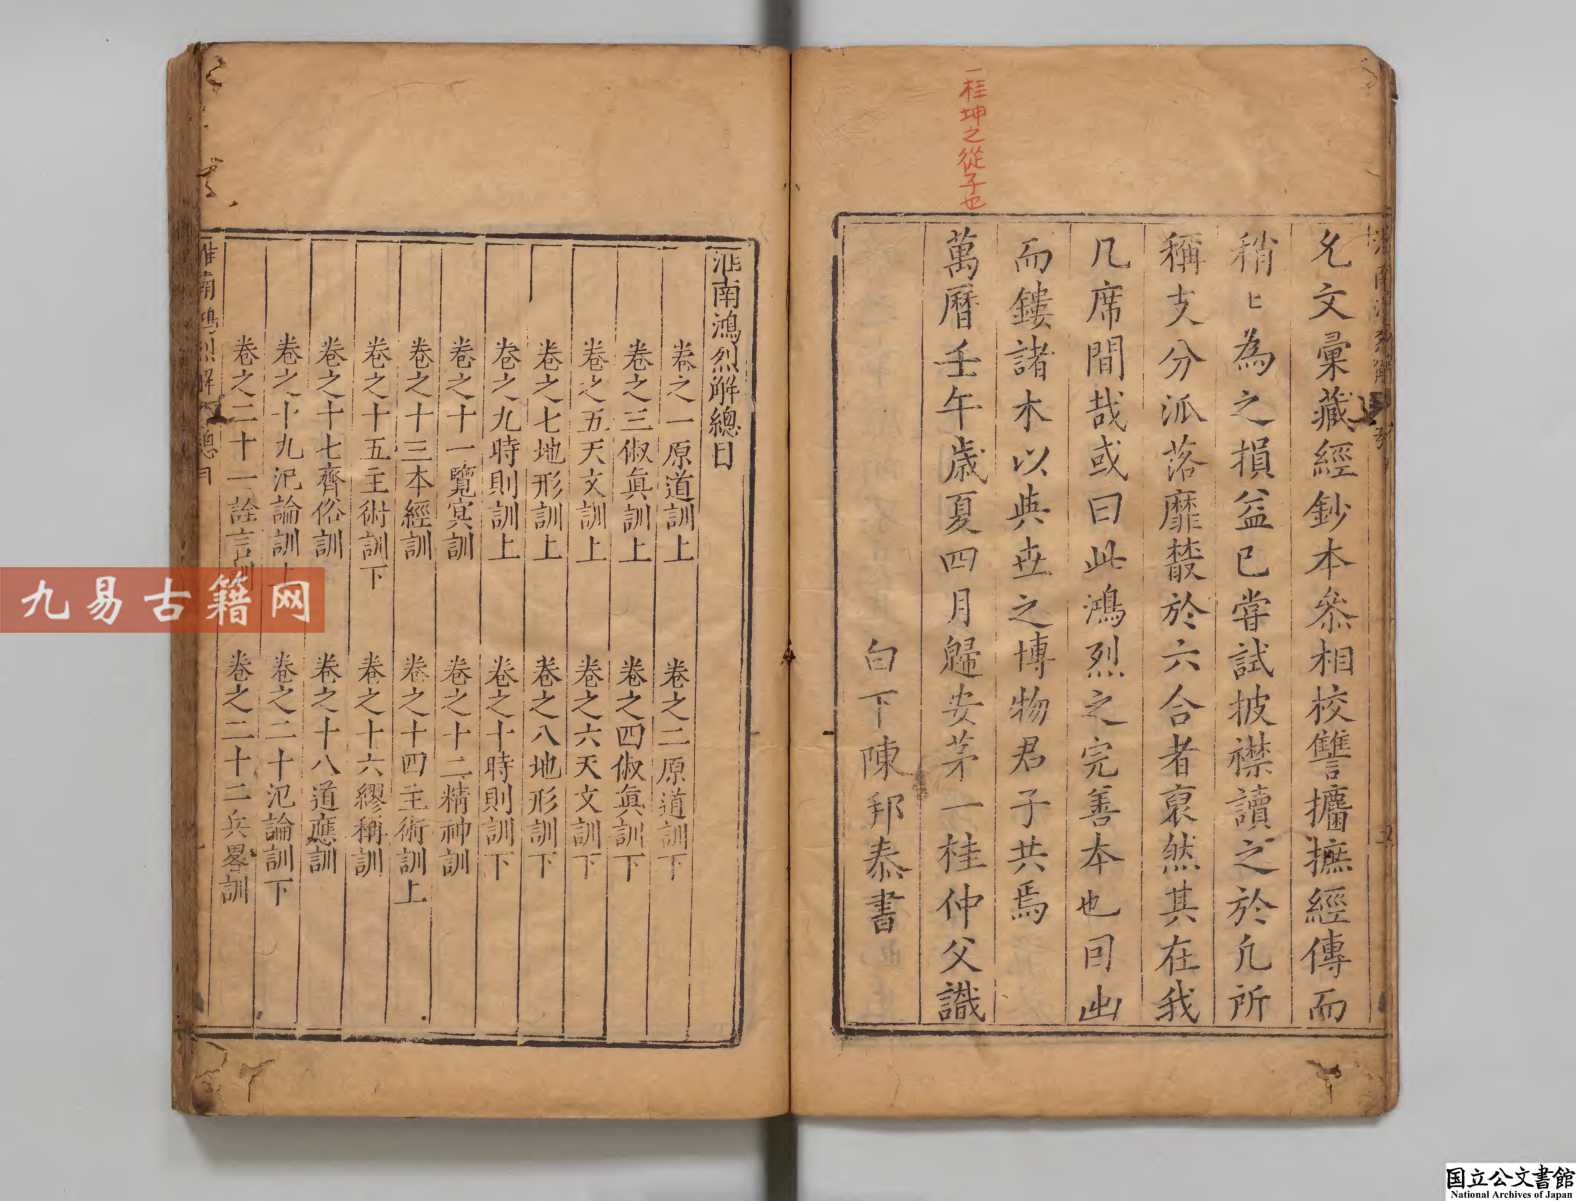 一桂坤之從子也
允文彙藏經鈔本叅相校讐攟摭經傳而
稍〻為之損益已甞試披襟讀之於凡所
稱支分派落靡蔓於六合者裒然其在我
几席間哉或曰此鴻烈之完善本也因出
而鏤諸木以與世之博物君子共焉
萬曆壬午歲夏四月歸安茅一桂仲父識
白下陳邦泰書
淮南鴻烈解總目
卷之一原道訓上 卷之二原道訓下
卷之三俶真訓上 卷之四俶真訓下
卷之五天文訓上 卷之六天文訓下
卷之七地形訓上 卷之八地形訓下
卷之九時則訓上 卷之十時則訓下
卷之十一覽冥訓 卷之十二精神訓
卷之十三本經訓 卷之十四主術訓上
卷之十五主術訓下 卷之十六繆稱訓
卷之十七齊俗訓 卷之十八道應訓
卷之十九氾論訓上 卷之二十氾論訓下
卷之二十一詮言訓 卷之二十二兵畧訓
淮南鴻烈解 總目
九易古籍网
国立公文書館
National Archives of Japan